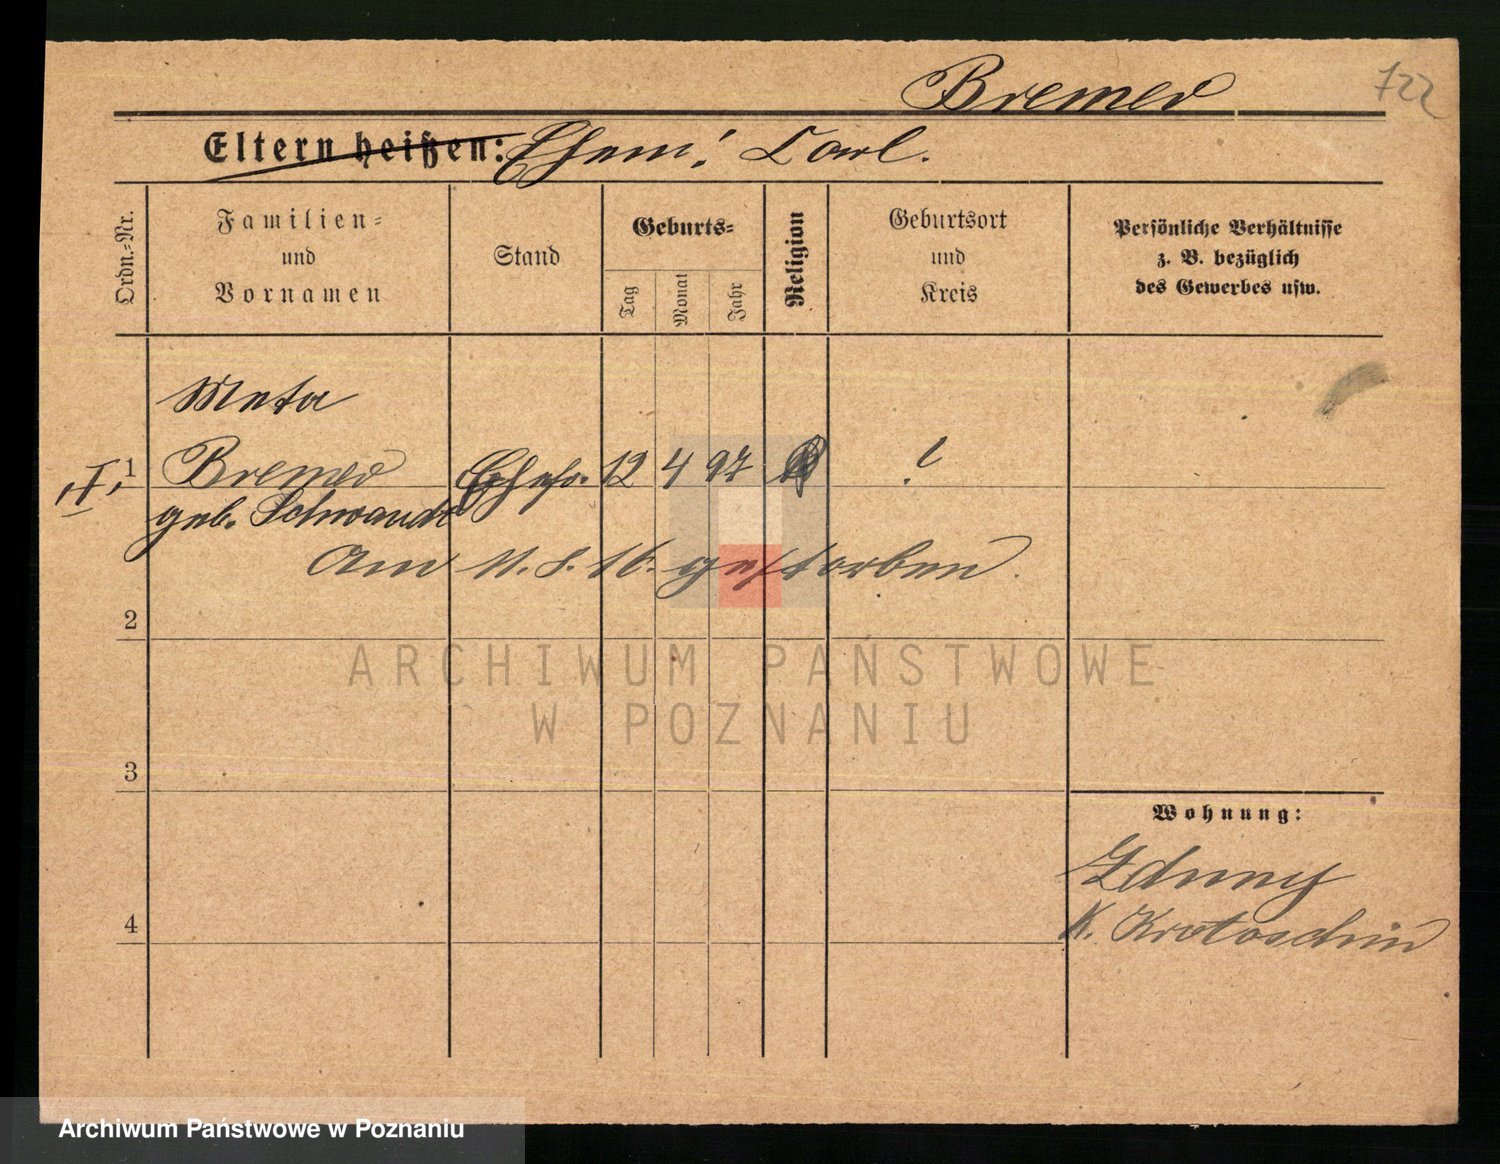 Bremer
722
Eltern heißen: Ehem: Carl.
Ordn.-Nr.
Familien-
und
Vornamen
Stand
Geburts-
Tag
Monat
Jahr
Religion
Geburtsort
und
Kreis
Persönliche Verhältnisse
z. B. bezüglich
des Gewerbes usw.
Meta
I, 1 Bremer Ehefr. 12 4 97 ?
geb. Schwandt
Am 11. 8. 16. gestorben.
2
ARCHIWUM PAŃSTWOWE
W POZNANIU
3
Wohnung:
Zduny
K. Krotoschin
4
Archiwum Państwowe w Poznaniu